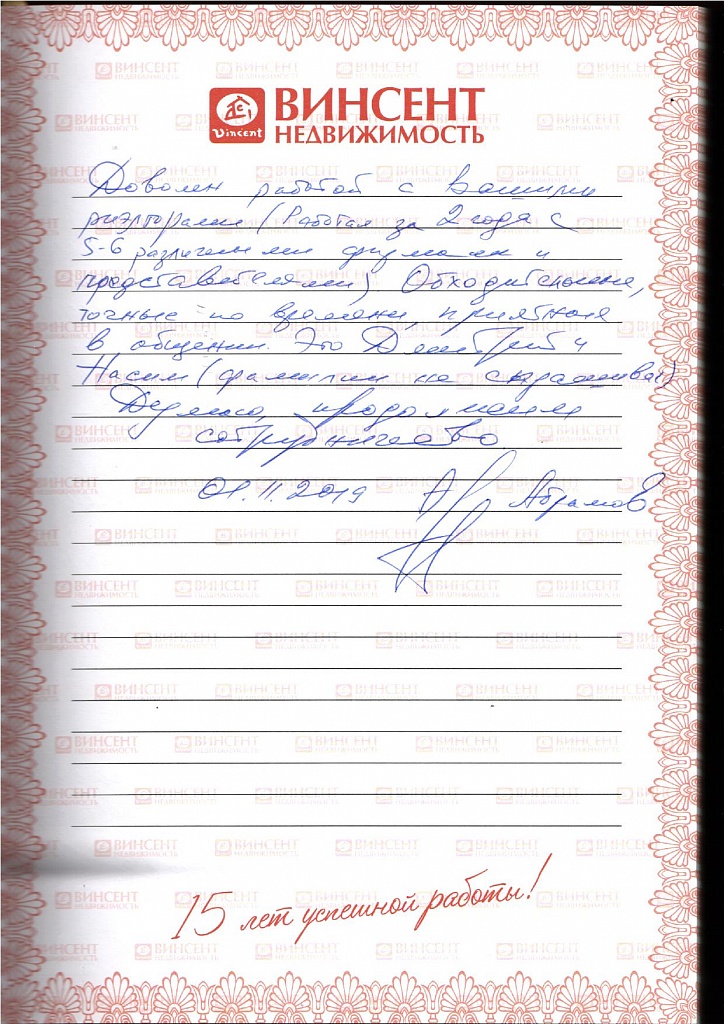 Vincent
ВИНСЕНТ
НЕДВИЖИМОСТЬ
Доволен работой с Вашими
риэлторами (Работал за 2 года с
5-6 различными фирмами и
представителями). Обходительные,
точные по времени приятные
в общении. Это Дмитрий и
Насим (фамилии не спрашивал)
Думаю, продолжаем
сотрудничество
01.11.2019 Абрамов
15 лет успешной работы!